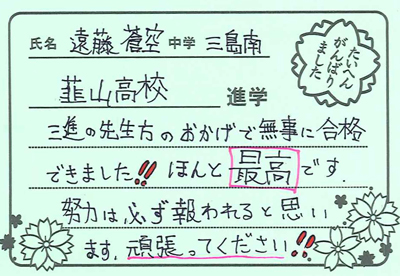 氏名 遠藤蒼空 中学 三島南
たいへん
がんばり
ました
韮山高校 進学
三進の先生方のおかげで無事に合格
できました!! ほんと 最高 です.
努力は必ず報われると思い
ます. 頑張ってください!!